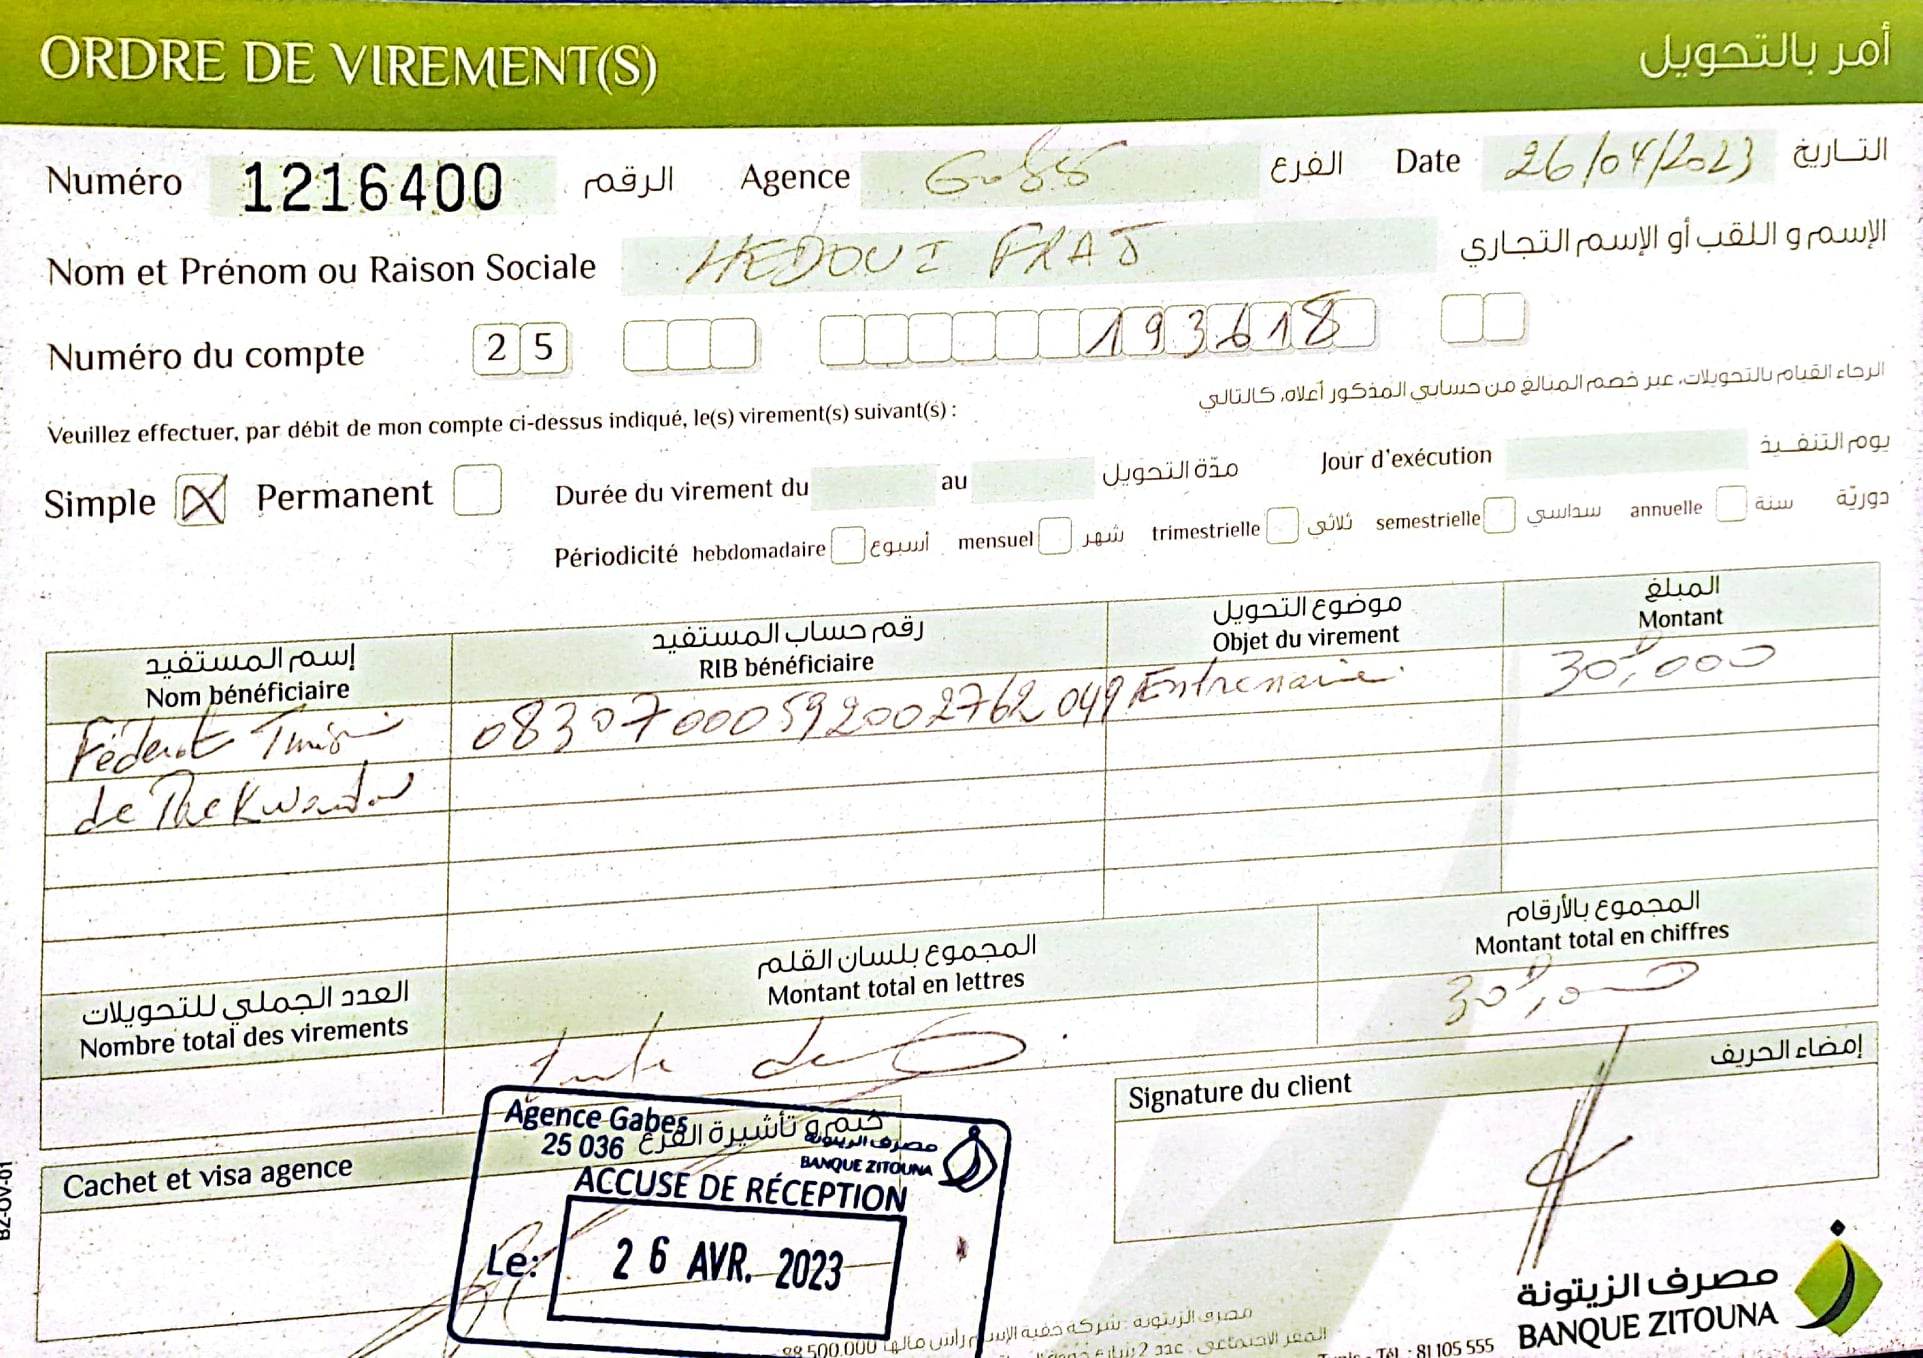 ORDRE DE VIREMENT(S) أمر بالتحويل
Numéro 1216400 الرقم Agence الفرع Date 26/04/2023 التاريخ
Nom et Prénom ou Raison Sociale HEDOUI FRAJ الإسم و اللقب أو الإسم التجاري
Numéro du compte 25 193618
Veuillez effectuer, par débit de mon compte ci-dessus indiqué, le(s) virement(s) suivant(s) : الرجاء القيام بالتحويلات، عبر خصم المبالغ من حسابي المذكور أعلاه، كالتالي
Simple X Permanent Durée du virement du au مدّة التحويل Jour d'exécution يوم التنفيذ
Périodicité hebdomadaire أسبوع mensuel شهر trimestrielle ثلاثي semestrielle سداسي annuelle سنة دوريّة
إسم المستفيد رقم حساب المستفيد موضوع التحويل المبلغ
Nom bénéficiaire RIB bénéficiaire Objet du virement Montant
Féderat 08307000592002762049 30D,000
de TheKwando
العدد الجملي للتحويلات المجموع بلسان القلم المجموع بالأرقام
Nombre total des virements Montant total en lettres Montant total en chiffres
30D,000
Cachet et visa agence ختم و تأشيرة الفرع
Signature du client إمضاء الحريف
Agence Gabes
25 036
مصرف الزيتونة
BANQUE ZITOUNA
ACCUSE DE RÉCEPTION
Le: 26 AVR. 2023
مصرف الزيتونة
BANQUE ZITOUNA
Tél. : 81 105 555
BZ-OV-01